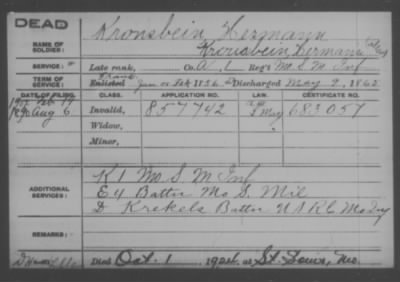 DEAD
NAME OF SOLDIER: Kronsbein, Hermann
Kronsbein, Hermann
SERVICE: Late rank, Co. A, 1 Reg't Mo. S. M. Inf
TERM OF SERVICE: Enlisted Jan or Feb 1862 Discharged May 9, 1862
DATE OF FILING. CLASS. APPLICATION NO. LAW. CERTIFICATE NO.
Aug 6 Invalid, 857742 683057
Widow,
Minor,
ADDITIONAL SERVICES: K 1 Mo. S. M Inf
E 4 Battn Mo S. Mil
D Krekels Battn U.S.R.C. Mo
REMARKS:
Died Oct. 1, 1924, at St. Louis, Mo.